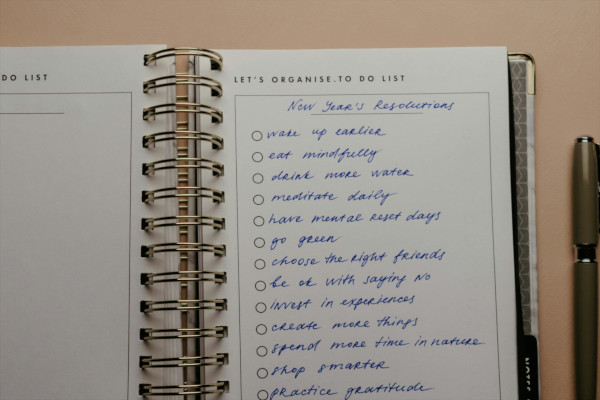 DO LIST
LET'S ORGANISE.TO DO LIST
New Year's Resolutions
wake up earlier
eat mindfully
drink more water
meditate daily
have mental reset days
go green
choose the right friends
be ok with saying No
invest in experiences
create more things
spend more time in nature
shop smarter
practice gratitude
NOTES